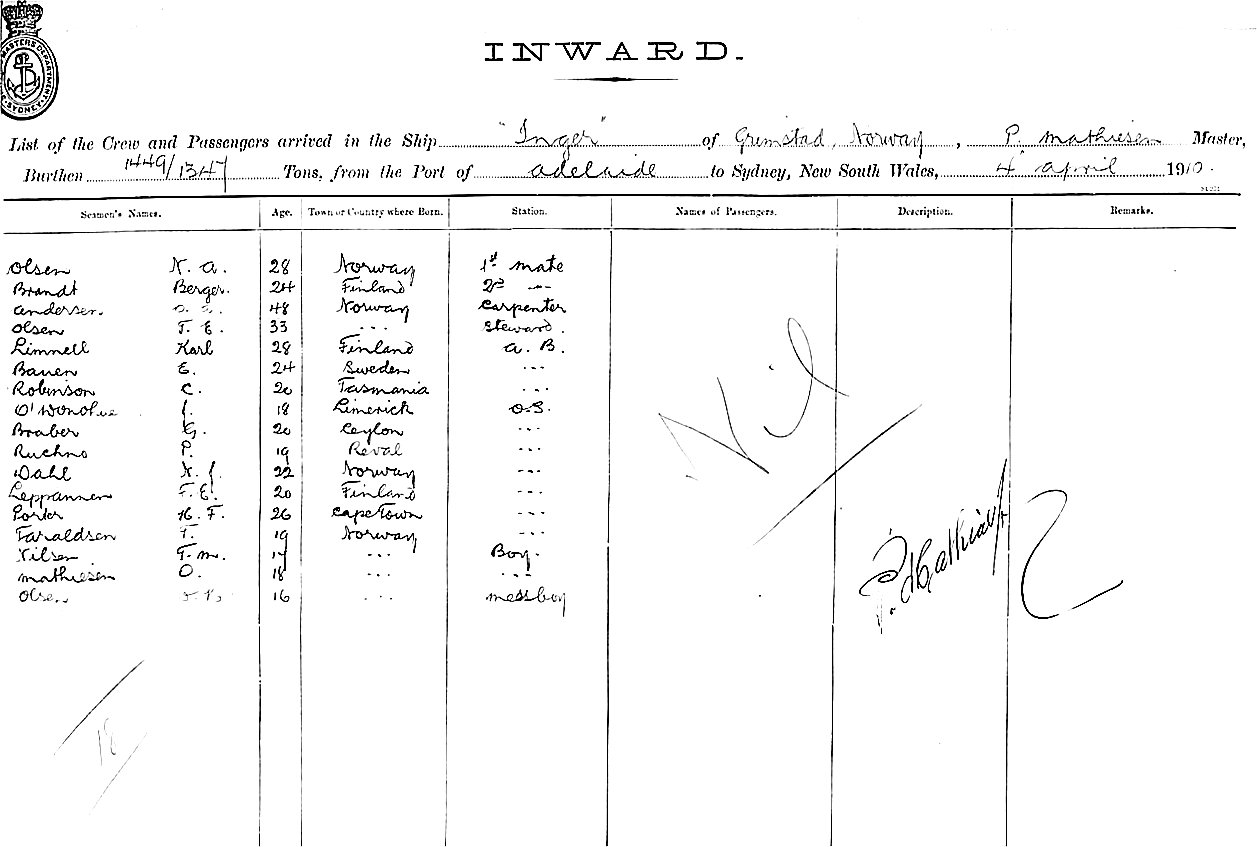 MASTERS DEPARTMENT
SYDNEY
INWARD.
List of the Crew and Passengers arrived in the Ship "Inger" of Grimstad, Norway, P. Mathiesen Master,
Burthen 1449/1347 Tons, from the Port of Adelaide to Sydney, New South Wales, 4 April 1910.
Seamen's Names. Age. Town or Country where Born. Station. Names of Passengers. Description. Remarks.
Olsen N. A. 28 Norway 1st mate
Brandt Berger. 24 Finland 2nd "
Andersen. 48 Norway Carpenter
Olsen T. E. 33 " Steward.
Limnell Karl 28 Finland A. B.
Bauen E. 24 Sweden "
Robinson C. 20 Tasmania "
O'Donohue J. 18 Limerick O.S.
Braber G. 20 Ceylon "
Ruchno P. 19 Reval "
Dahl N. J. 22 Norway "
Leppannen F. E. 20 Finland "
Porter H. F. 26 Cape Town "
Taraldsen T. 19 Norway "
Nilsen T. M. 17 " Boy.
Mathiesen O. 18 " "
Olsen 16 " Messboy
Nil
P. Mathiesen
18